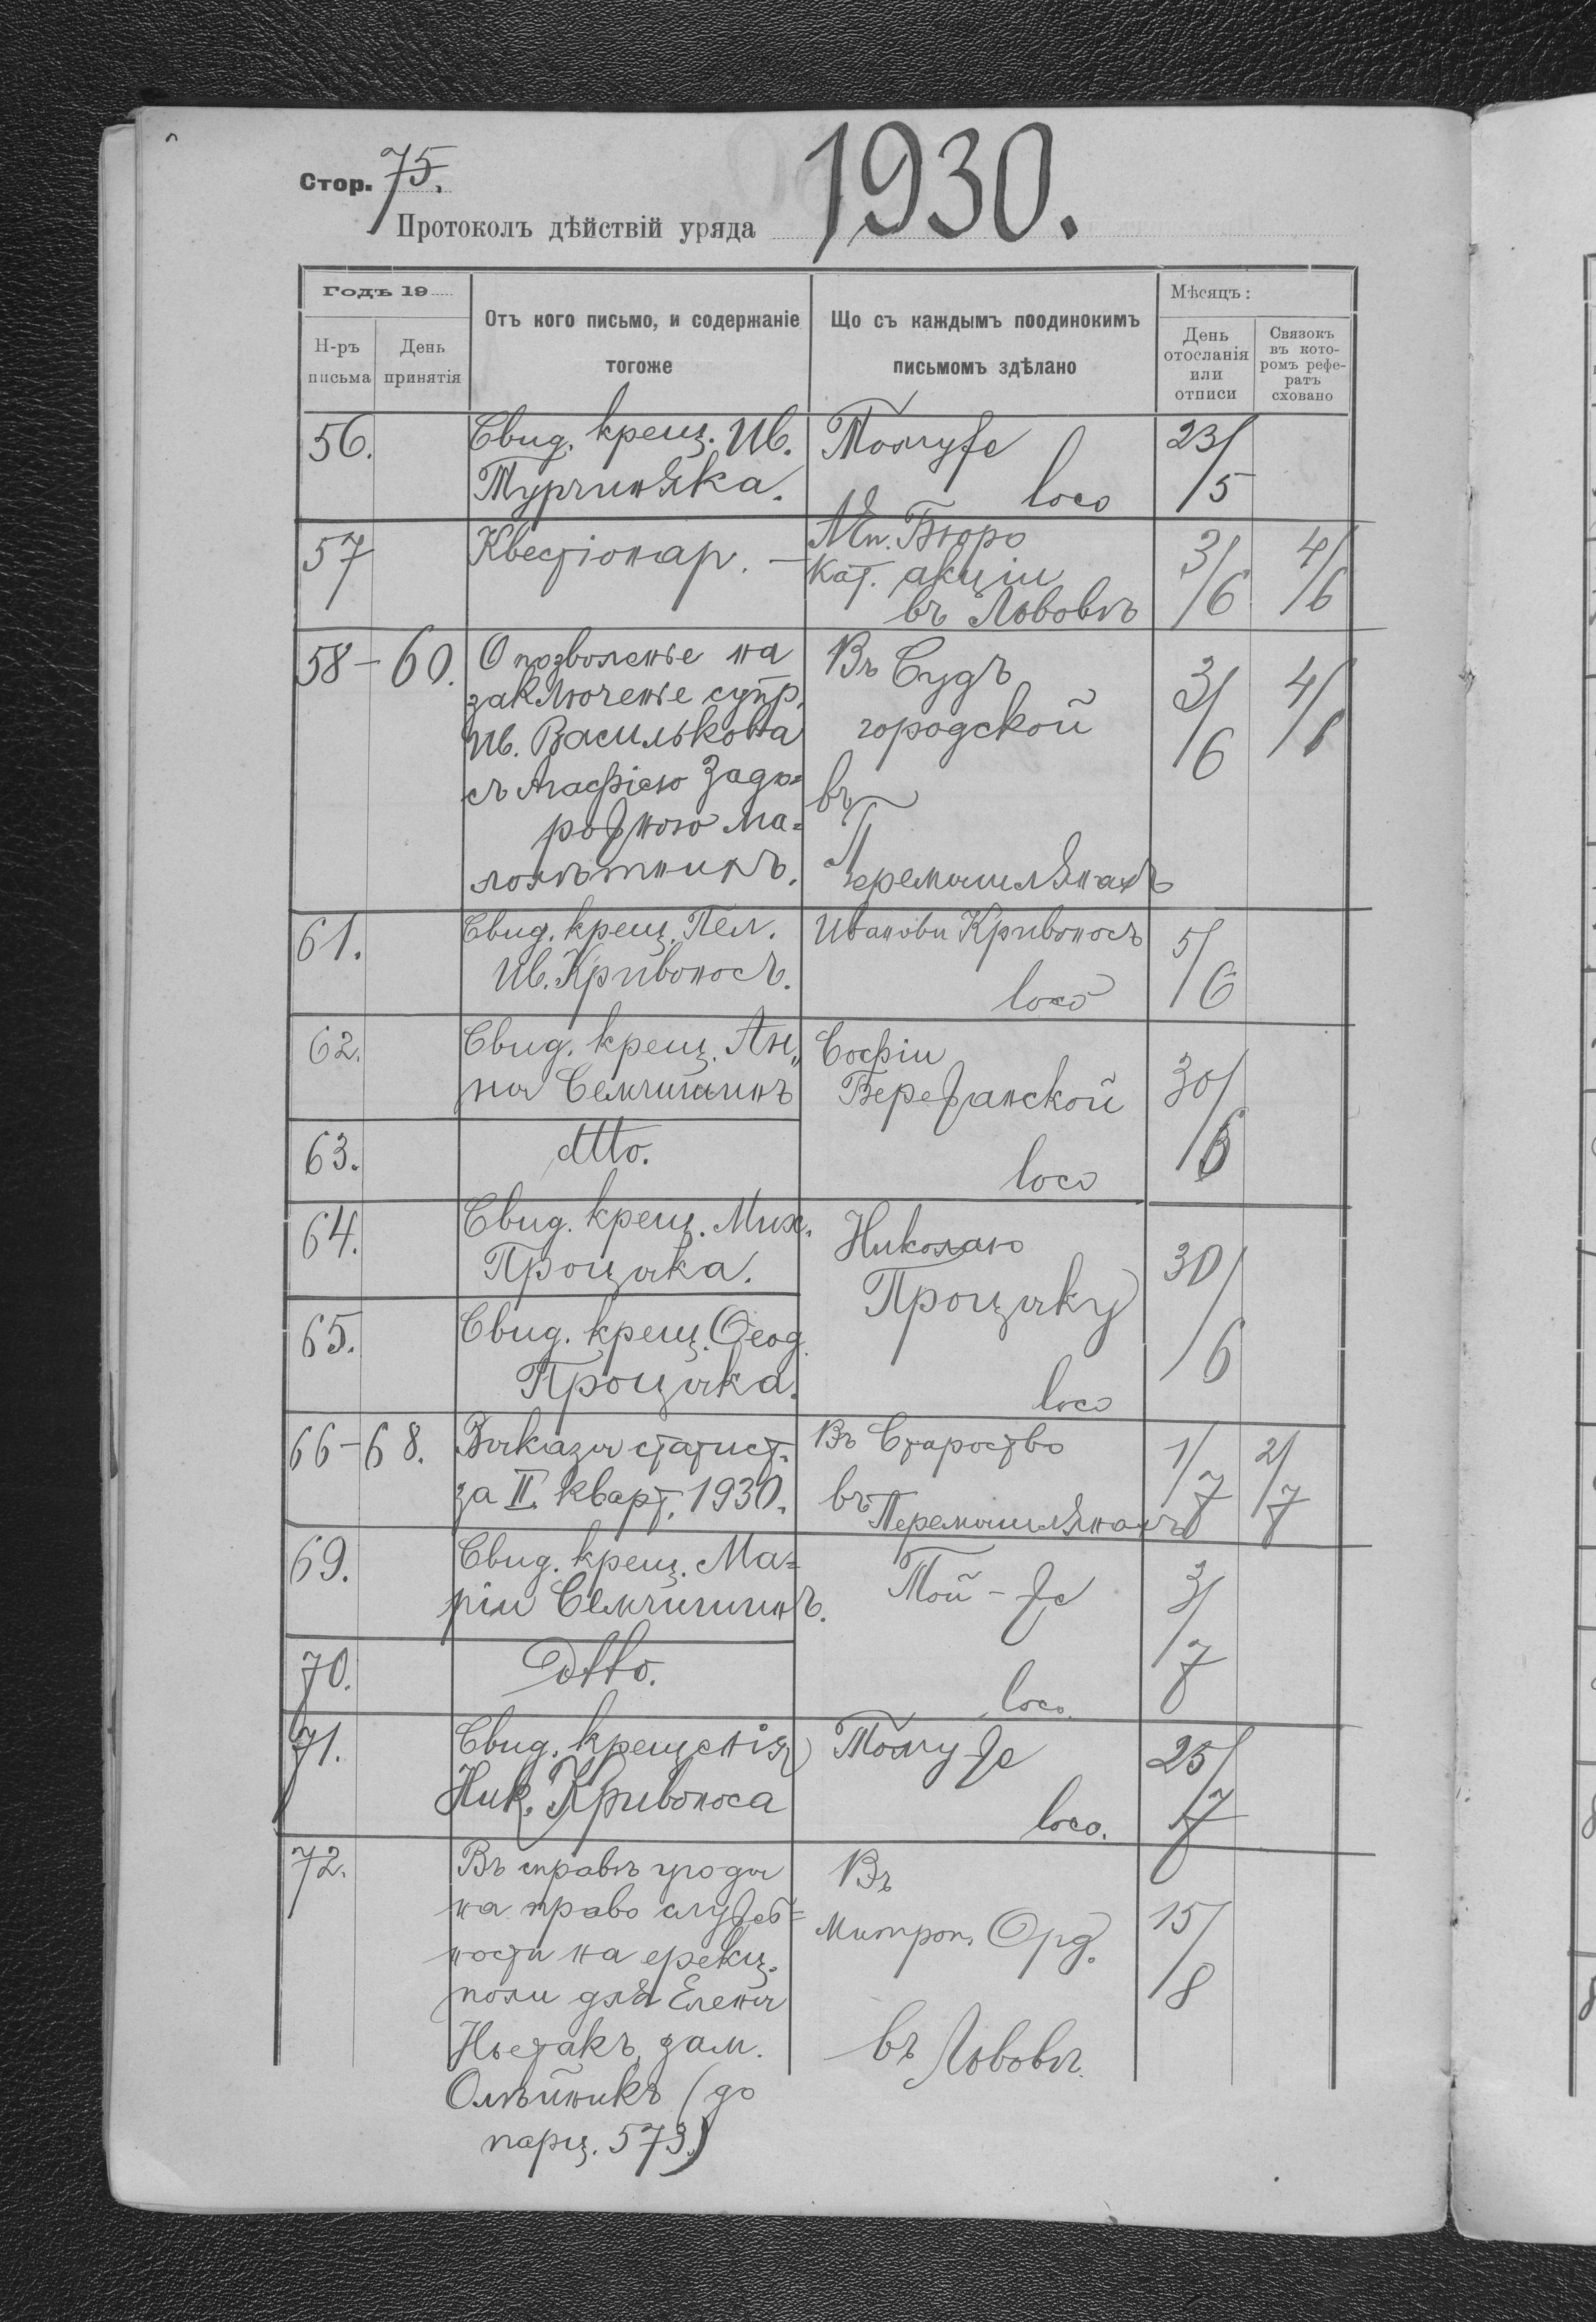 Стор. 75.
1930.
Протоколъ дѣйствій уряда
Годъ 19
Н-ръ письма
День принятія
Отъ кого письмо, и содержаніе
тогоже
Що съ каждымъ поодинокимъ
письмомъ здѣлано
Мѣсяцъ:
День
отосланія
или
отписи
Связокъ
въ кото-
ромъ рефе-
ратъ
сховано
56.
Свид. крещ. Ив.
Турчиняка.
Томуже
loco
23/5
57
Квестіонар. –
Еп. Бюро
Кат. акціи
въ Львовѣ
3/6
4/6
58–60.
О позволенье на
заключенье супр.
Ив. Василькова
съ Агафіею Задо=
рожною ма=
лолѣтнихъ.
Въ Судъ
городской
въ
Перемышлянахъ
3/6
4/6
61.
Свид. крещ. Пел.
Ив. Кривоносъ.
Иванови Кривоносъ
loco
5/6
62.
Свид. крещ. Ан„
ны Семчишинъ
Софіи
Бережанской
loco
30/6
63.
dtto.
64.
Свид. крещ. Мих.
Процыка.
Николаю
Процыку
loco
30/6
65.
Свид. крещ. Ѳеод.
Процыка.
66–68.
Выказы статист.
за II. кварт. 1930.
Въ Староство
въ Перемышлянахъ
1/7
2/7
69.
Свид. крещ. Ма=
ріи Семчишинъ.
Той-же
loco.
3/7
70.
Dtto.
71.
Свид. крещенія
Ник. Кривоноса
Томуже
loco.
25/7
72.
Въ справѣ угоды
на право служеб=
ности на ерекц.
поли для Елены
зам.
Олѣйникъ (до
парц. 573.)
Въ
Митроп. Орд.
въ Львовѣ.
15/8